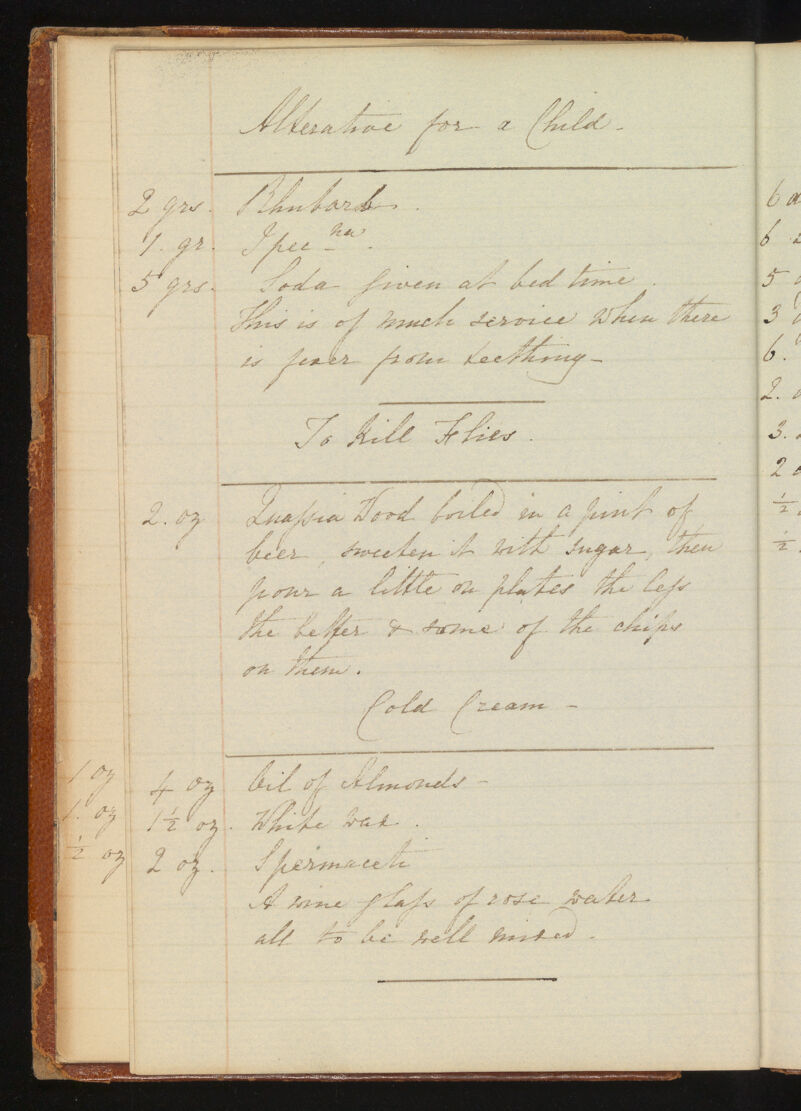 Alterative for a Child -
2 grs. Rhubarb.
1. gr. Ipec na.
5 grs. Soda given at bed time.
This is of much service when there
is fever from teething -
To Kill Flies.
2. oz Quaſsia Wood boiled in a pint of
beer, sweeten it with sugar, then
pour a little on plates the leſs
the better & some of the chips
on them.
Cold Cream -
1 oz 4 oz Oil of Almonds -
1. oz 1½ oz. White wax.
½ oz 2 oz. Spermaceti
A wine glaſs of rose water
all to be well mixed -
6
6
5
3
6.
2.
3.
2
½
½